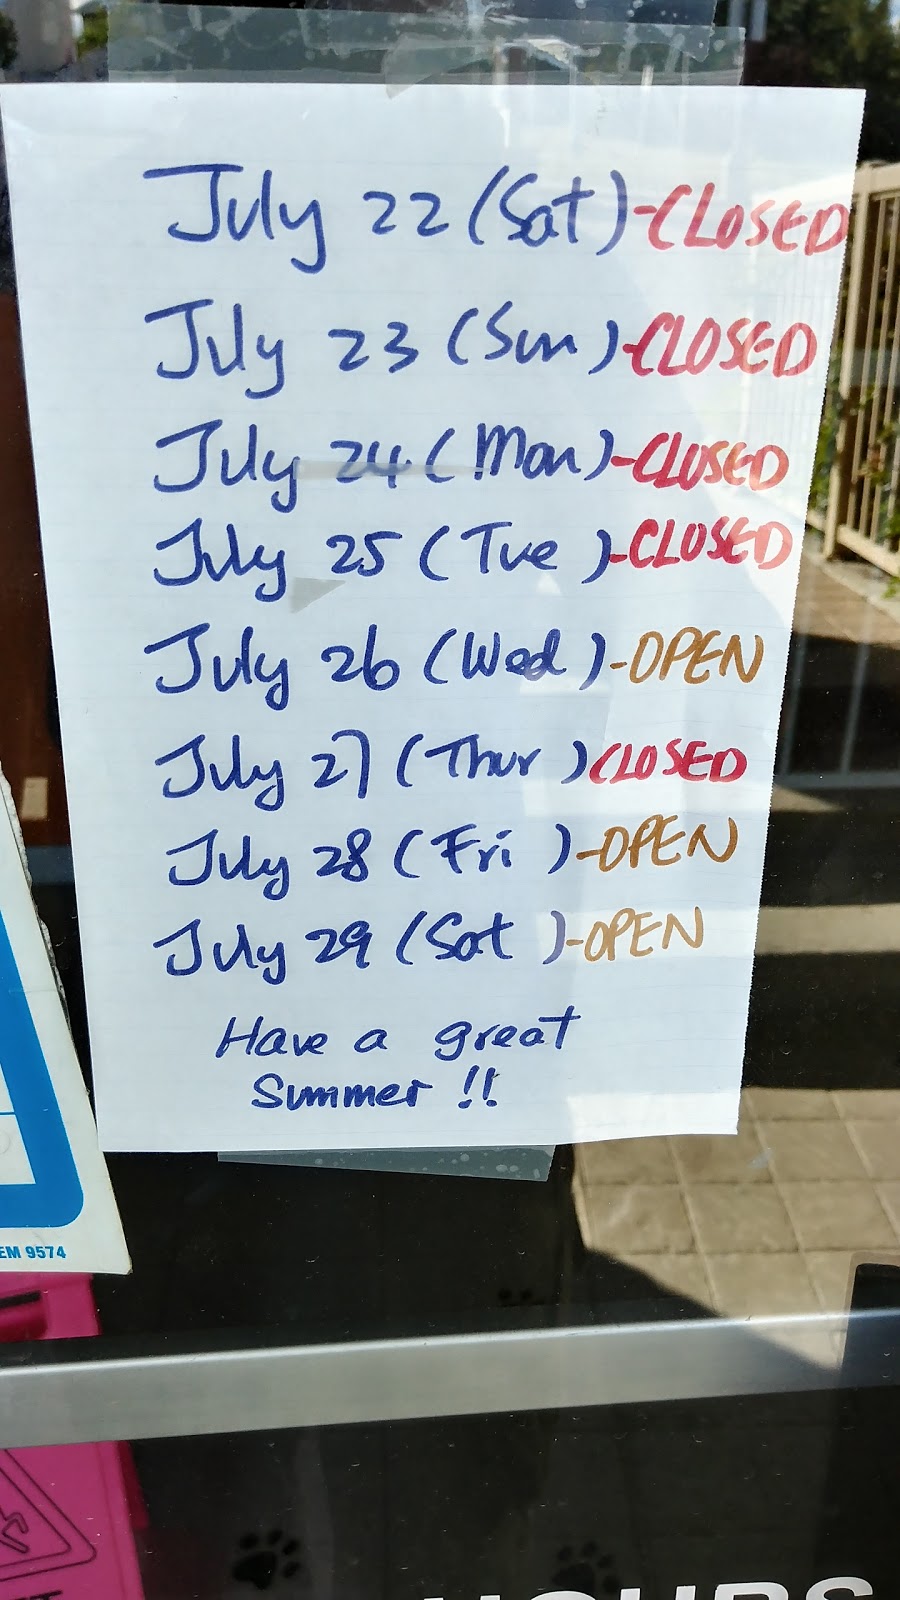 July 22 (Sat)-CLOSED
July 23 (Sun)-CLOSED
July 24 (Mon)-CLOSED
July 25 (Tue)-CLOSED
July 26 (Wed)-OPEN
July 27 (Thur) CLOSED
July 28 (Fri)-OPEN
July 29 (Sat)-OPEN
Have a great
Summer !!
EM 9574
HOURS